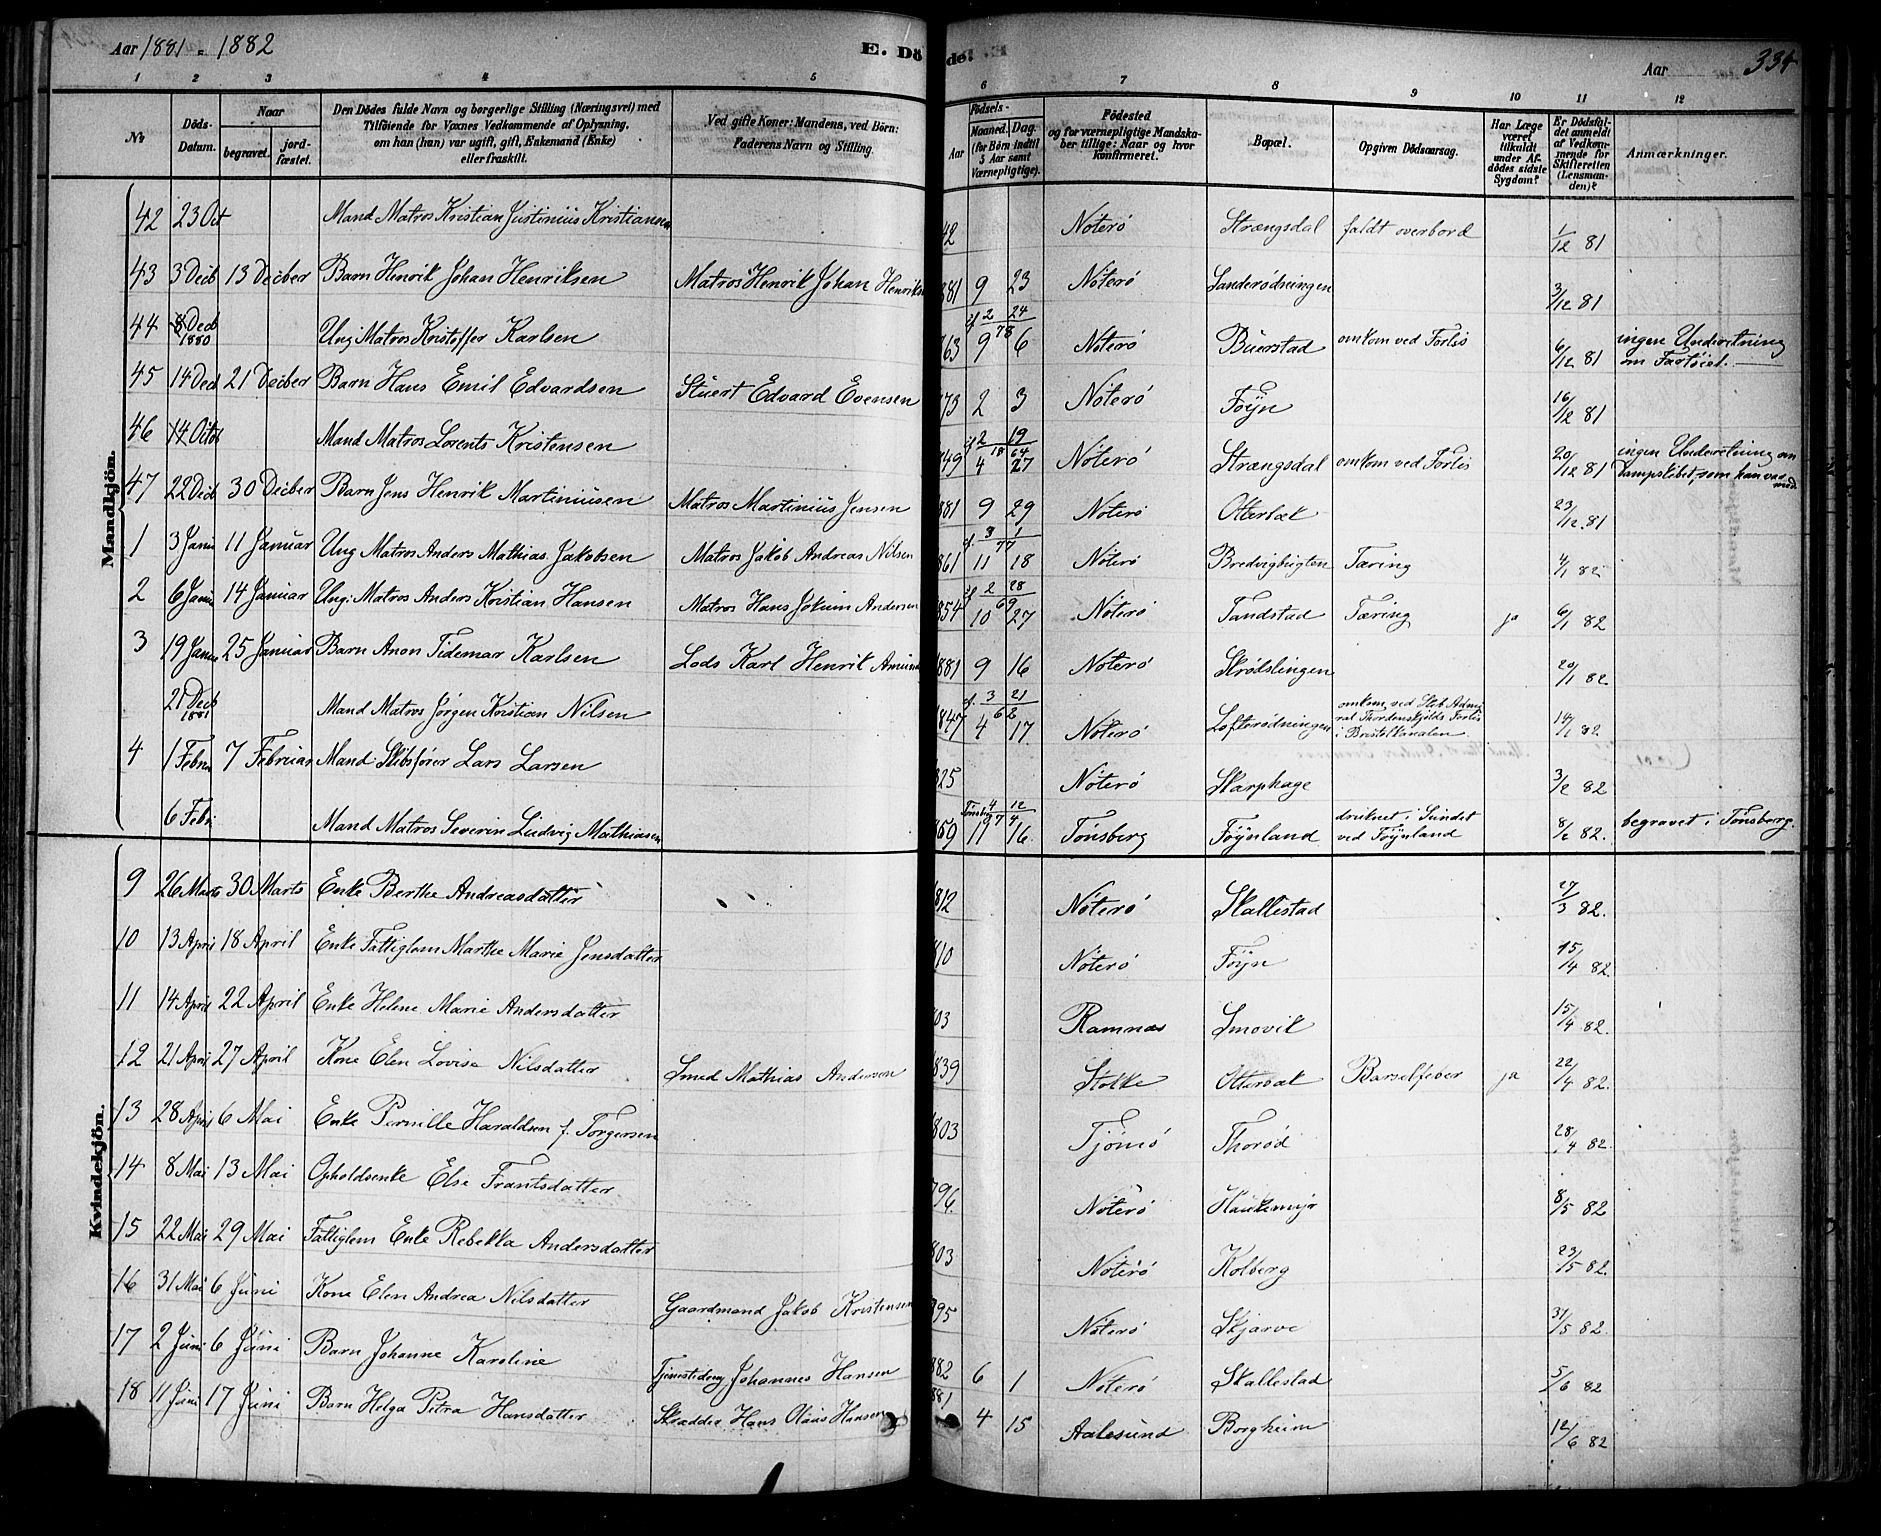 Aar 1881 - 1882
E. Dö
de.
Aar
334
1 2 3 4 5 6 7 8 9 10 11 12
No
Döds-
Datum.
Naar
begravet.
jord-
fæstet.
Den Dödes fulde Navn og borgerlige Stilling (Næringsvei) med
Tilföiende for Voxnes Vedkommende af Oplysning,
om han (hun) var ugift, gift, Enkemand (Enke)
eller fraskilt.
Ved gifte Koner: Mandens, ved Börn:
Faderens Navn og Stilling.
Födsels-
Aar
Maaned.
Dag.
(for Börn indtil
5 Aar samt
Værnepligtige).
Födested
og for værnepligtige Mandska-
ber tillige: Naar og hvor
konfirmeret.
Bopæl.
Opgiven Dödsaarsag.
Har Læge
været
tilkaldt
under Af-
dödes sidste
Sygdom?
Er Dödsfal-
det anmeldt
af Vedkom-
mende for
Skifteretten
(Lensman-
den)?
Anmærkninger.
Mandkjön.
42 23 Oct Mand Matros Kristian Justinius Kristiansen 42 Nøterø Strængsdal faldt overbord 1/12 81
43 3 Decb 13 Decber Barn Henrik Johan Henriksen Matros Henrik Johan Henriksn 881 9 23 Nøterø Sanderødningen 3/12 81
44 8 Decb 1880 Ung. Matros Kristoffer Karlsen 2 24 78 863 9 6 Nøterø Buerstad omkom ved Forlis 6/12 81 ingen Underretning
om Fartøiet.
45 14 Decb 21 Decber Barn Hans Emil Edvardsen Stuert Edvard Evensen 73 2 3 Nøterø Føÿn 16/12 81
46 14 Octob Mand Matros Lorents Kristensen 2 19 18 64 849 4 27 Nøterø Strængsdal omkom ved Forlis 20/12 81 ingen Underretning om
Dampskibet, som han var
med
47 22 Decb 30 Decber Barn Jens Henrik Martiniusen Matros Martinius Jensen 881 9 29 Nøterø Otterbæk 23/12 81
1 3 Janu 11 Januar Ung. Matros Anders Mathias Jakobsen Matros Jakob Andreas Nilsen 3 1 77 861 11 18 Nøterø Bredvigbugten Tæring 4/1 82
2 6 Janu 14 Januar Ung. Matros Anders Kristian Hansen Matros Hans Jokum Andersen 2 28 69 854 10 27 Nøterø Tandstad Tæring ja 6/1 82
3 19 Janu 25 Januar Barn Anon Tidemar Karlsen Lods Karl Henrik Amund 881 9 16 Nøterø Skrødslingen 20/1 82
21 Decb 1881 Mand Matros Jørgen Kristian Nilsen 3 21 62 1847 4 17 Nøterø Lofterødningen omkom ved Skb. Admi
ral Thordenskjolds Forlis
i Bristolkanalen 14/1 82
4 1 Febru 7 Februar Mand Skibsfører Lars Larsen 825 Nøterø Skarphage 3/2 82
6 Febr Mand Matros Severin Ludvig Mathiasen Tønsberg 4 12 859 11 16 Tønsberg Føÿnland druknet i Sundet
ved Føÿnland 8/2 82. begravet i Tønsberg.
Kvindekjön.
9 26 Marts 30 Marts Enke Berthe Andreasdatter 812 Nøterø Skallestad 27/3 82.
10 13 April 18 April Enke Fattiglem Marthe Marie Jensdatter 810 Nøterø Føÿn 15/4 82
11 14 April 22 April Enke Helene Marie Andersdatter 03 Ramnæs Smovik 15/4 82.
12 21 April 27 April Kone Elen Lovise Nilsdatter Smed Mathias Andersen 839 Stokke Otterbæk Barselfeber ja 22/4 82.
13 28 April 6 Mai Enke Pernille Haraldsen f. Torgersen 803 Tjømø Thorød 28/4 82.
14 8 Mai 13 Mai Opholdsenke Else Frantsdatter 796. Nøterø Haukemyr 8/5 82
15 22 Mai 29 Mai Fattiglem Enke Rebekka Andersdatter 803 Nøterø Kolberg 23/5 82.
16 31 Mai 6 Juni Kone Elen Andrea Nilsdatter Gaardmand Jakob Kristensen 95 Nøterø Skjærve 31/5 82.
17 2 Juni 6 Juni Barn Johanne Karoline Johannes Hansen 882 6 1 Nøterø Skallestad 5/6 82
18 11 Juni 17 Juni Barn Helga Petra Hansdatter Skrædder Hans Olaus Hansen 881 4 15 Aalesund Borgheim 12/6 82